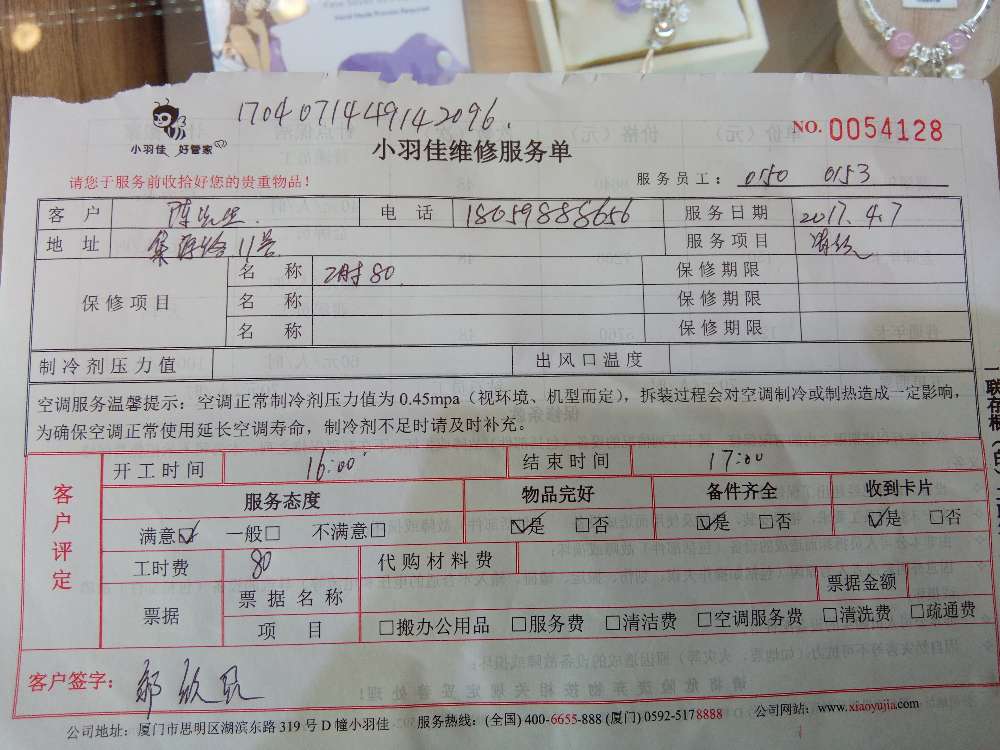 Hand Made Process Required
1704071449142096.
小羽佳 好管家
小羽佳维修服务单
NO. 0054128
请您于服务前收拾好您的贵重物品！
服务员工： 0150 0153
客 户 陈先生. 电 话 18059888656 服务日期 2017.4.7
地 址 11号 服务项目
保修项目
名 称 2时80. 保修期限
名 称 保修期限
名 称 保修期限
制冷剂压力值 出风口温度
空调服务温馨提示：空调正常制冷剂压力值为 0.45mpa（视环境、机型而定），拆装过程会对空调制冷或制热造成一定影响，
为确保空调正常使用延长空调寿命，制冷剂不足时请及时补充。
客户评定
开工时间 16:00 结束时间 17:00
服务态度 物品完好 备件齐全 收到卡片
满意☑ 一般□ 不满意□ ☑是 □否 ☑是 □否 ☑是 □否
工时费 80 代购材料费
票据 票据名称 票据金额
项 目 □搬办公用品 □服务费 □清洁费 □空调服务费 □清洗费 □疏通费
客户签字：
公司地址：厦门市思明区湖滨东路 319 号 D 幢小羽佳 服务热线：(全国) 400-6655-888 (厦门) 0592-5178888 公司网站：www.xiaoyujia.com